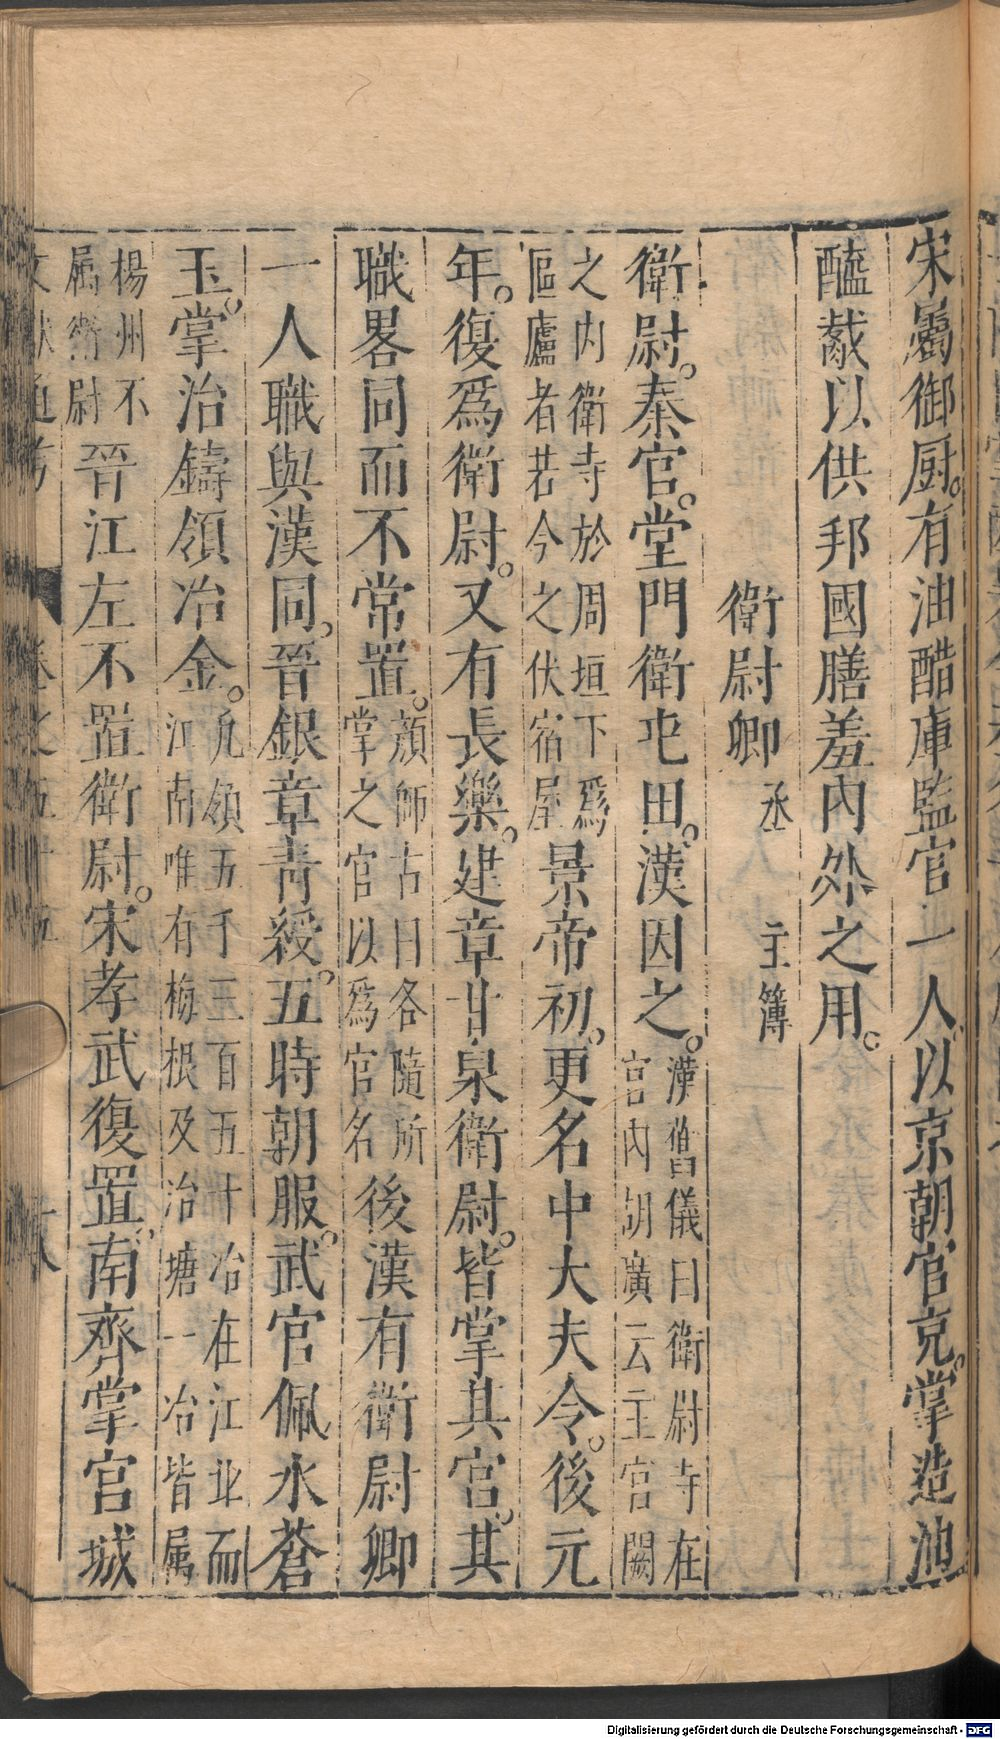 宋屬御厨。有油醋庫監官一人。以京朝官充。掌造油
醯醎以供邦國膳羞內外之用。
衛尉卿 丞 主簿
衛尉。秦官。堂門衛屯田。漢因之。漢舊儀曰衛尉寺在
宮內胡廣云主宮闕
之內衛寺於周垣下爲
區廬者若今之伏宿屋景帝初。更名中大夫令。後元
年。復爲衛尉。又有長樂。建章甘泉衛尉。皆掌其宮。其
職畧同而不常置。顔師古曰各隨所
掌之官以爲官名後漢有衛尉卿
一人職與漢同。晉銀章青綬。五時朝服。武官佩水蒼
玉。掌治鑄領冶金。凡領五千三百五十冶在江北而
江南唯有梅根及冶塘一冶皆属
楊州不
属衛尉晉江左不置衛尉。宋孝武復置。南齊掌宮城
Digitalisierung gefördert durch die Deutsche Forschungsgemeinschaft - DFG